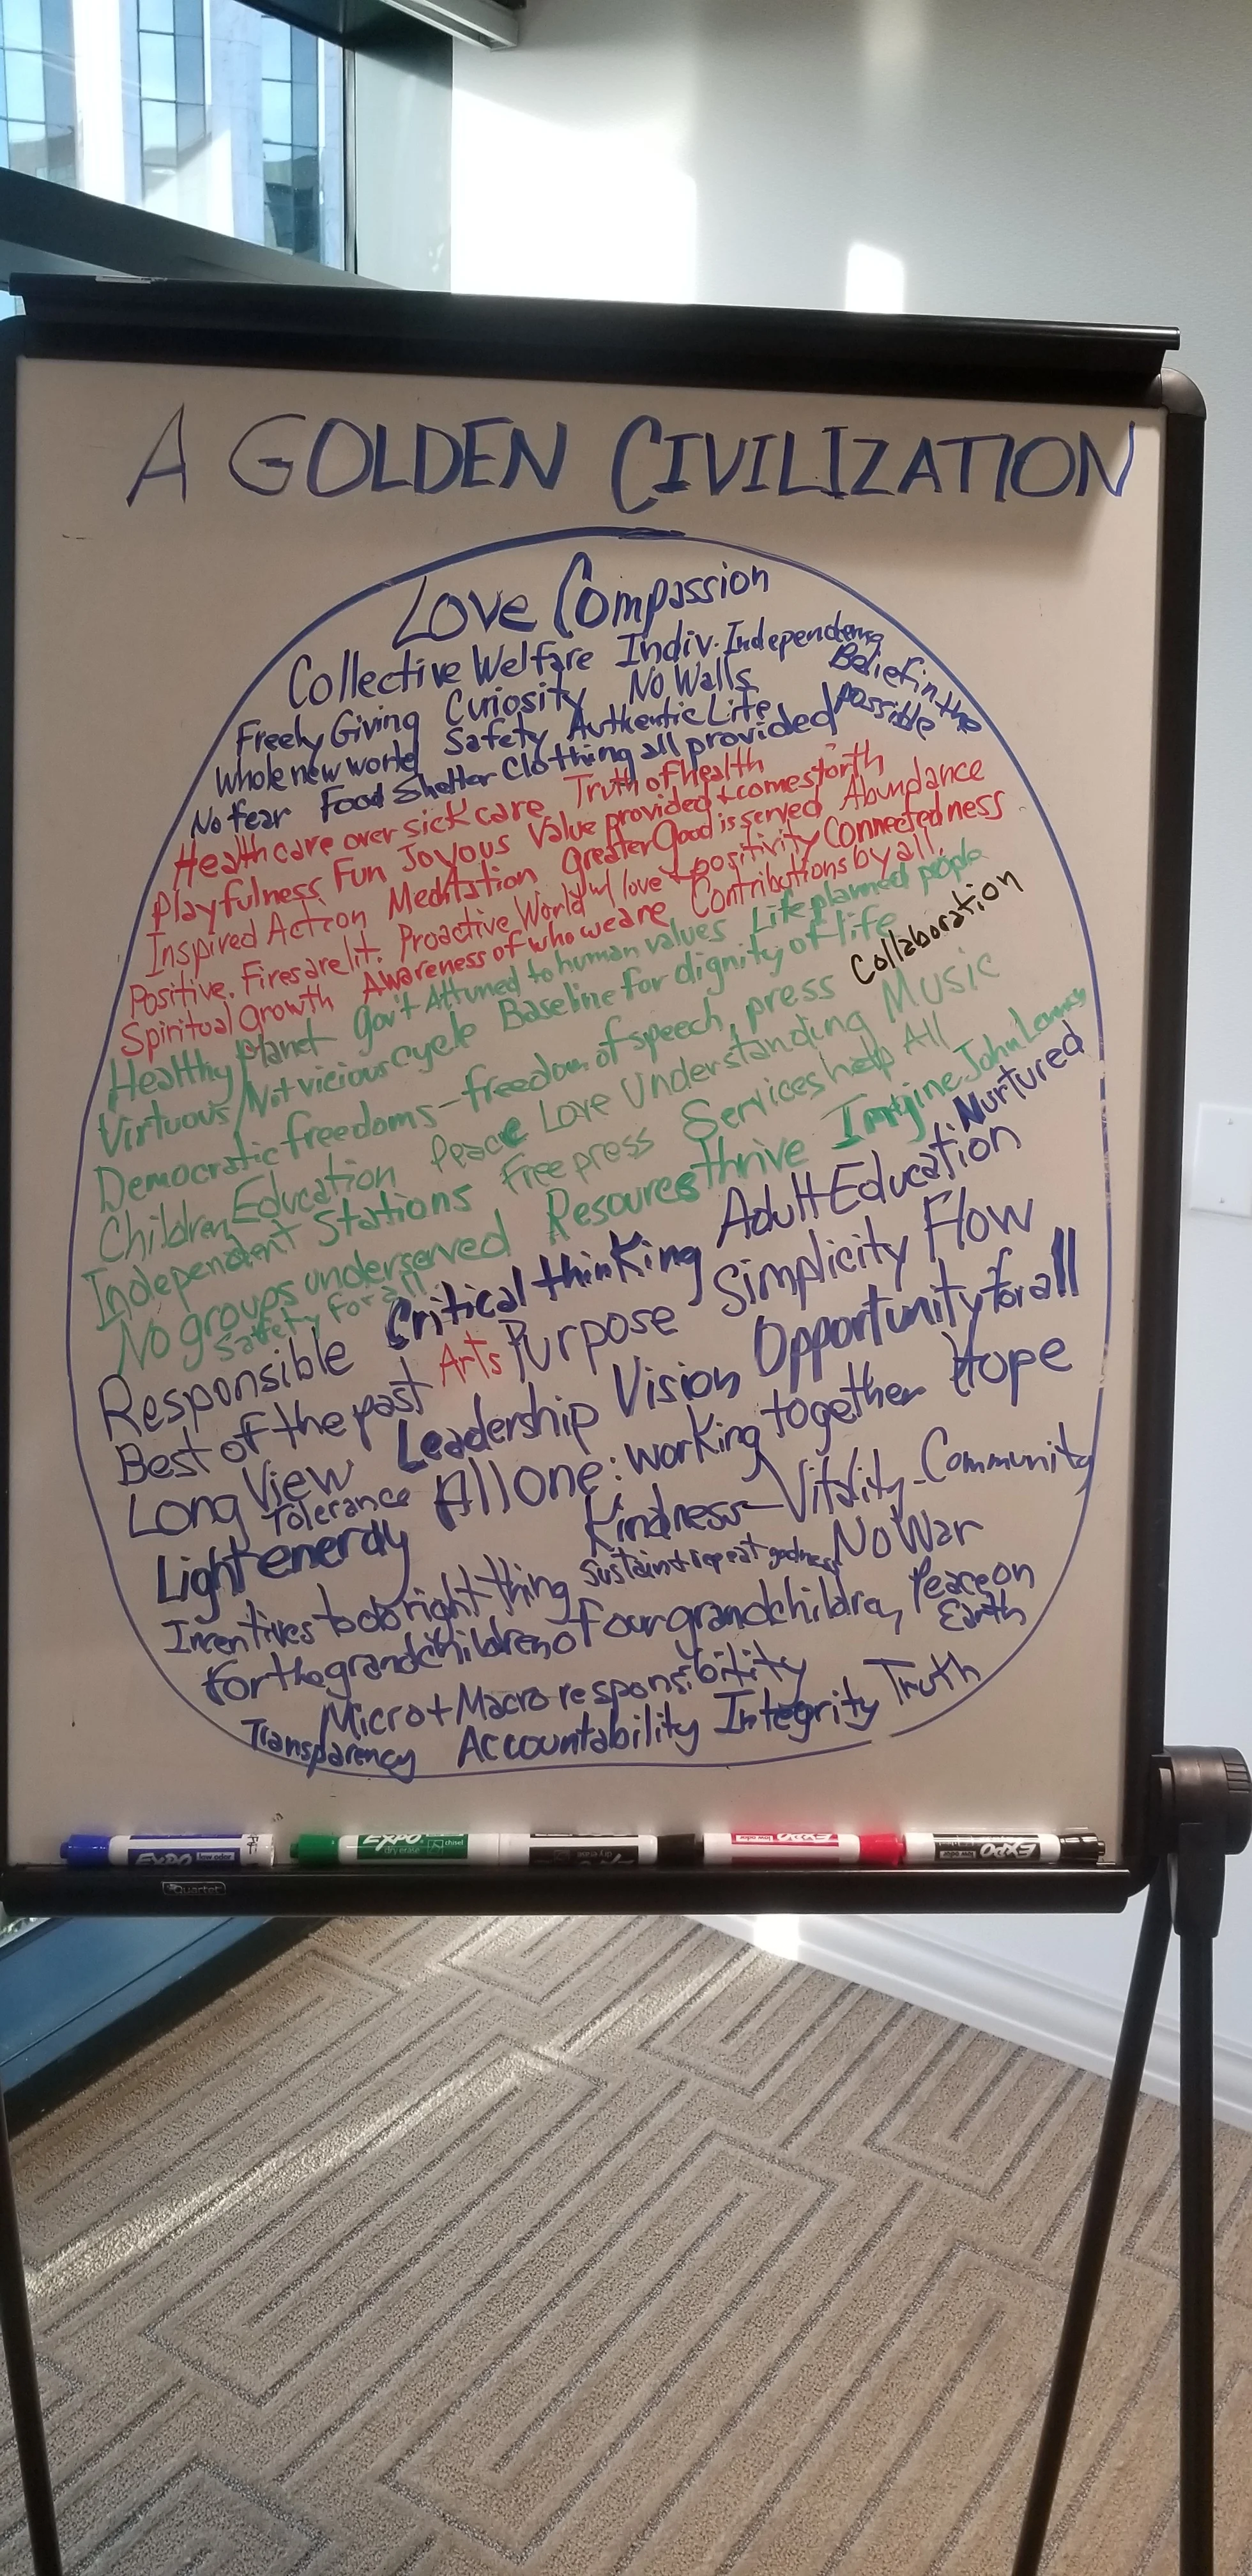 A GOLDEN CIVILIZATION
Love Compassion
Collective Welfare Indiv. Independence
Freely Giving Curiosity No Walls Belief in the
Whole new world Safety Authentic Life possible
No fear Food Shelter Clothing all provided
Health care over sick care Truth of health
Playfulness Fun Joyous Value provided + comes forth
Inspired Action Meditation Greater Good is served Abundance
Positive. Fires are lit. Proactive World w/ love + positivity Connectedness
Spiritual growth Awareness of who we are Contributions by all.
Healthy planet Gov't Attuned to human values Life planned people
Virtuous/Not vicious cycle Baseline for dignity of life
Democratic freedoms - freedom of speech, press Collaboration
Children, Education Peace Love Understanding Music
Independent Stations Free press Services help All
No groups underserved Resources thrive Imagine John Lennon
Safety for all
Responsible Critical thinking Adult Education Nurtured
Best of the past Arts Purpose Simplicity Flow
Long View Leadership Vision Opportunity for all
Tolerance
Light energy All one: working together Hope
Kindness - Vitality - Community
Incentives to do right thing Sustain + repeat goodness No War
For the grandchildren of our grandchildren Peace on
Earth
Micro + Macro responsibility
Transparency Accountability Integrity Truth
EXPO low odor
EXPO dry erase chisel
EXPO
EXPO low odor
EXPO low odor
Quartet